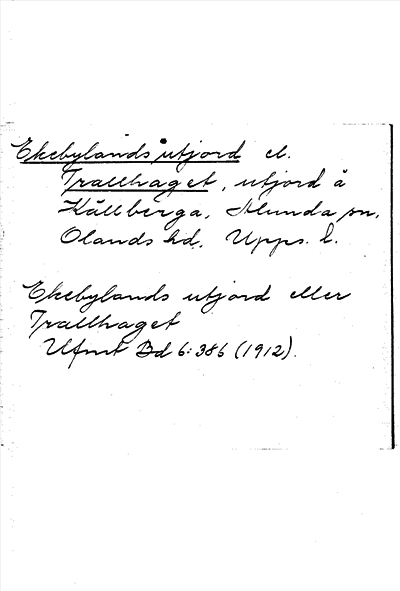 Ekebylands utjord el.
Trallhaget, utjord å
Källberga, Alunda sn,
Olands hd, Upps. l.
Ekebylands utjord eller
Trallhaget
Ufmt Bd 6:386 (1912).